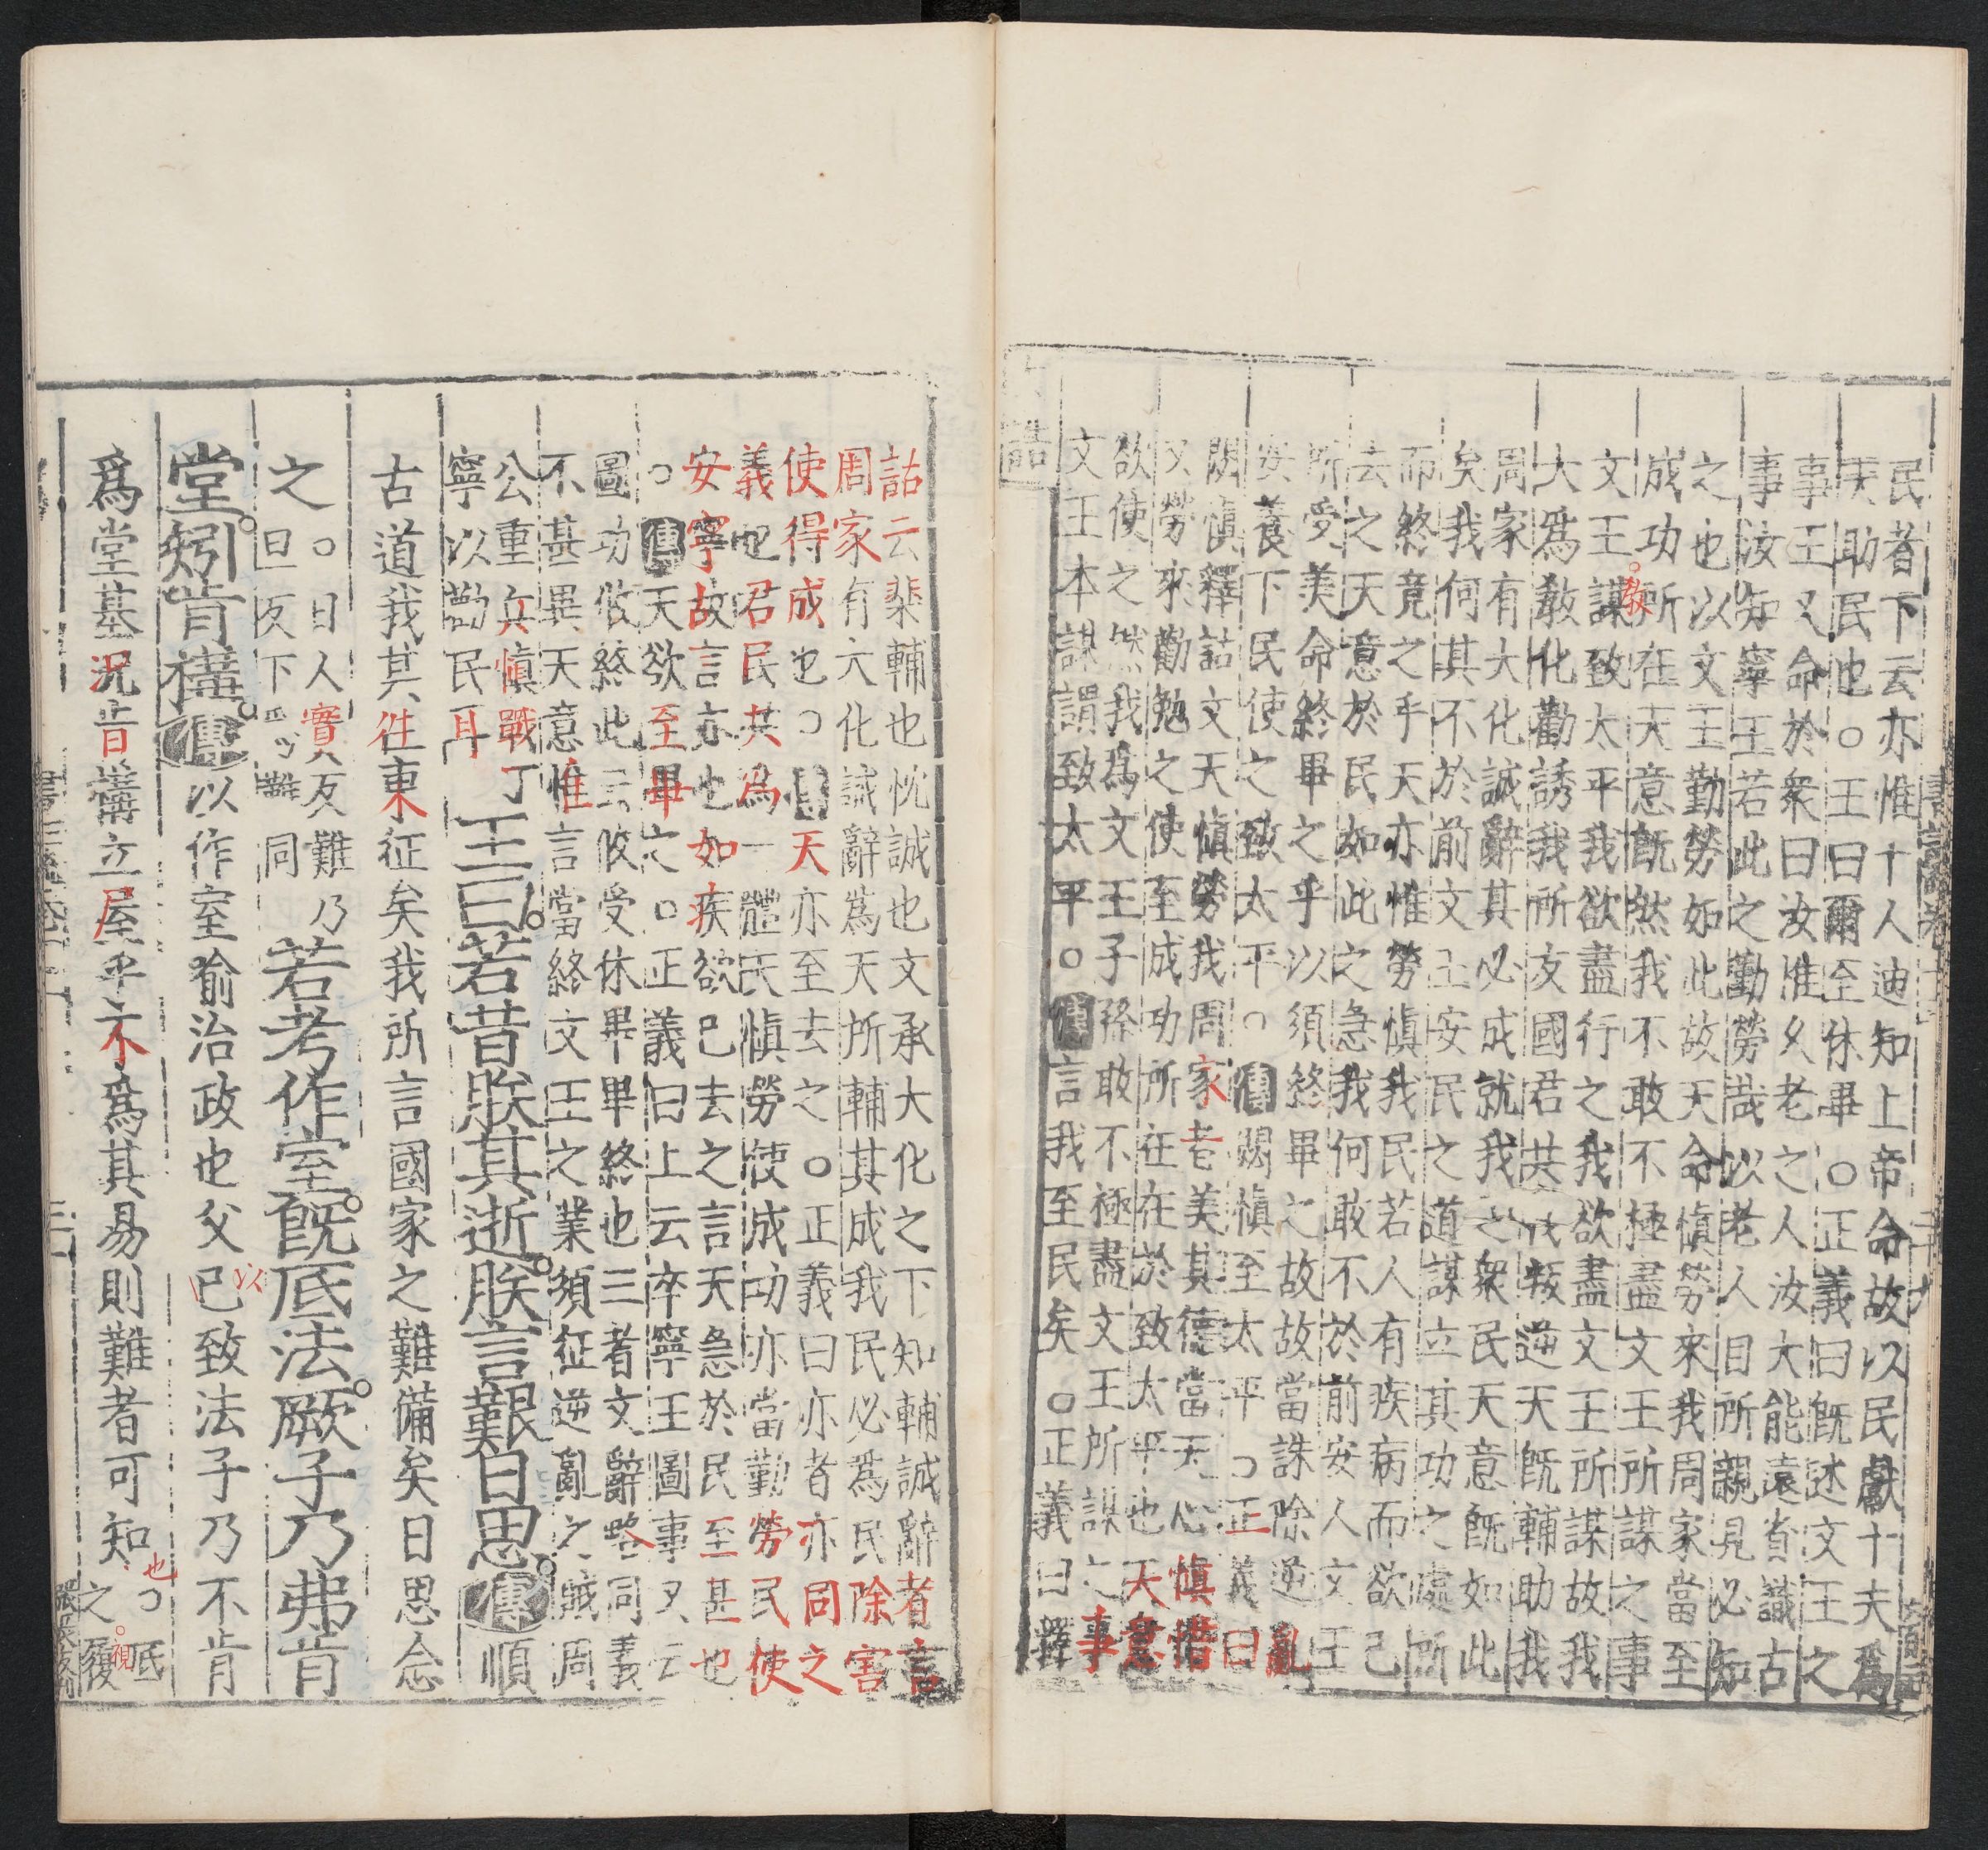 民者下云亦惟十人迪知上帝命故以民獻十夫爲
天助民也○王曰爾至休畢○正義曰旣述文王之
事王又命於衆曰汝惟久老之人汝大能遠省識古
事汝知寧王若此之勤勞哉以老人目所親見必知
之也以文王勤勞如此故天命愼勞來我周家當至
成功所在天意旣然我不敢不極盡文王所謀之事
文王謀致太平我欲盡行之我欲盡文王所謀故我
大爲敎化勸誘我所友國君共伐叛逆天旣輔助我
周家有大化誠辭其必成就我之衆民天意旣如此
矣我何其不於前文王安民之道謀立其功之處所
而終竟之乎天亦惟勞愼我民若人有疾病而欲已
去之天意於民如此之急我何敢不於前安人文王
所受美命終畢之乎以須終畢之故故當誅除逆亂
安養下民使之致太平○傳閟愼至太平○正義曰
閟愼釋詁文天愼勞我周家者美其德當天心愼惜
又勞來勸勉之使至成功所在在於致太平也天意
欲使之然我爲文王子孫敢不極盡文王所謀之事
文王本謀謂致太平○傳言我至民矣○正義曰釋
詁云棐輔也忱誠也文承大化之下知輔誠辭者言
周家有大化誠辭爲天所輔其成我民必爲民除害
使得成也○傳天亦至去之○正義曰亦者亦同之
義也君民共爲一體天愼勞使成功亦當勤勞民使
安寧故言亦也如疾欲已去之言天急於民至甚也
○傳天欲至畢之○正義曰上云卒寧王圖事又云
圖功攸終此云攸受休畢畢終也三者文辭略同義
不甚異天意惟言當終文王之業須征逆亂之賊周
公重兵愼戰丁寧以勸民耳 王曰若昔朕其逝朕言艱日思傳順
古道我其往東征矣我所言國家之難備矣日思念
之○日人實反難乃旦反下同 若考作室旣厎法厥子乃弗肯
堂矧肯構傳以作室喻治政也父已致法子乃不肯
爲堂基况肯構立屋乎不爲其易則難者可知也○厎之履